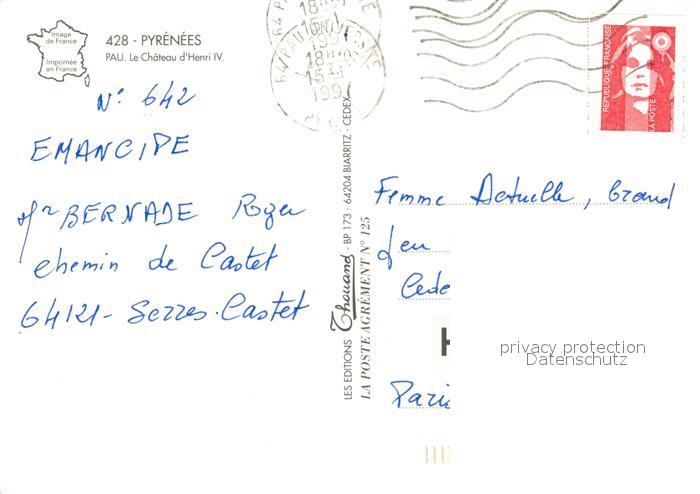 Image
de France
Imprimée
en France
428 - PYRÉNÉES
PAU. Le Château d'Henri IV.
N° 642
EMANCIPE
Mr BERNADE Roger
chemin de Castet
64121 - Serres-Castet
LES EDITIONS Thouand - BP 173 - 64204 BIARRITZ - CEDEX
LA POSTE AGRÉMENT N° 125
18H
15
64 PAU UNIVERSITE
18H
15
199
REPUBLIQUE FRANÇAISE
LA POSTE
Femme Actuelle, Grand
Jeu
Cede
H
Paris
privacy protection
Datenschutz